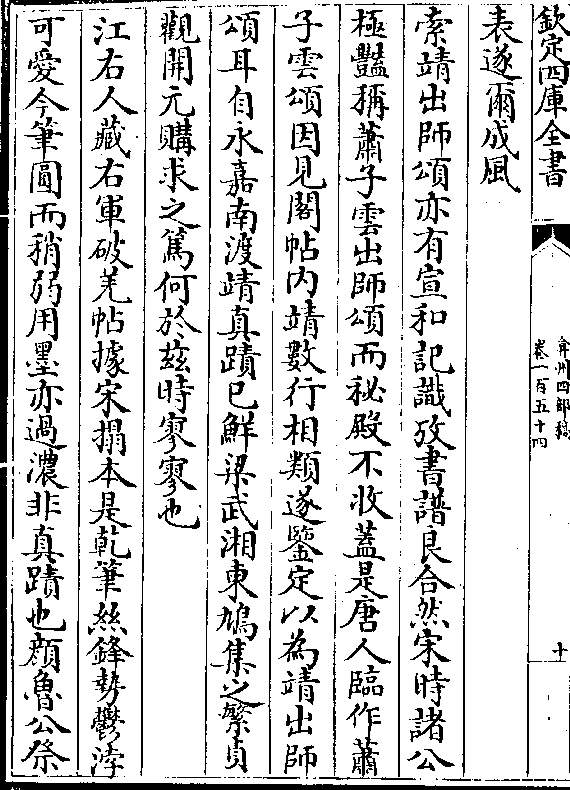 欽定四庫全書
弇州四部稿
卷一百五十四
十
表遂爾成風
索靖出師頌亦有宣和記識攷書譜良合然宋時諸公
極豔稱蕭子雲出師頌而秘殿不收蓋是唐人臨作蕭
子雲頌因見閣帖內靖數行相類遂鑒定以為靖出師
頌耳自永嘉南渡靖真蹟已鮮梁武湘東鳩集之繁貞
觀開元購求之篤何於茲時寥寥也
江右人藏右軍破羌帖據宋搨本是乾筆絲鋒勢鬱浡
可愛今筆圓而稍弱用墨亦過濃非真蹟也顏魯公祭